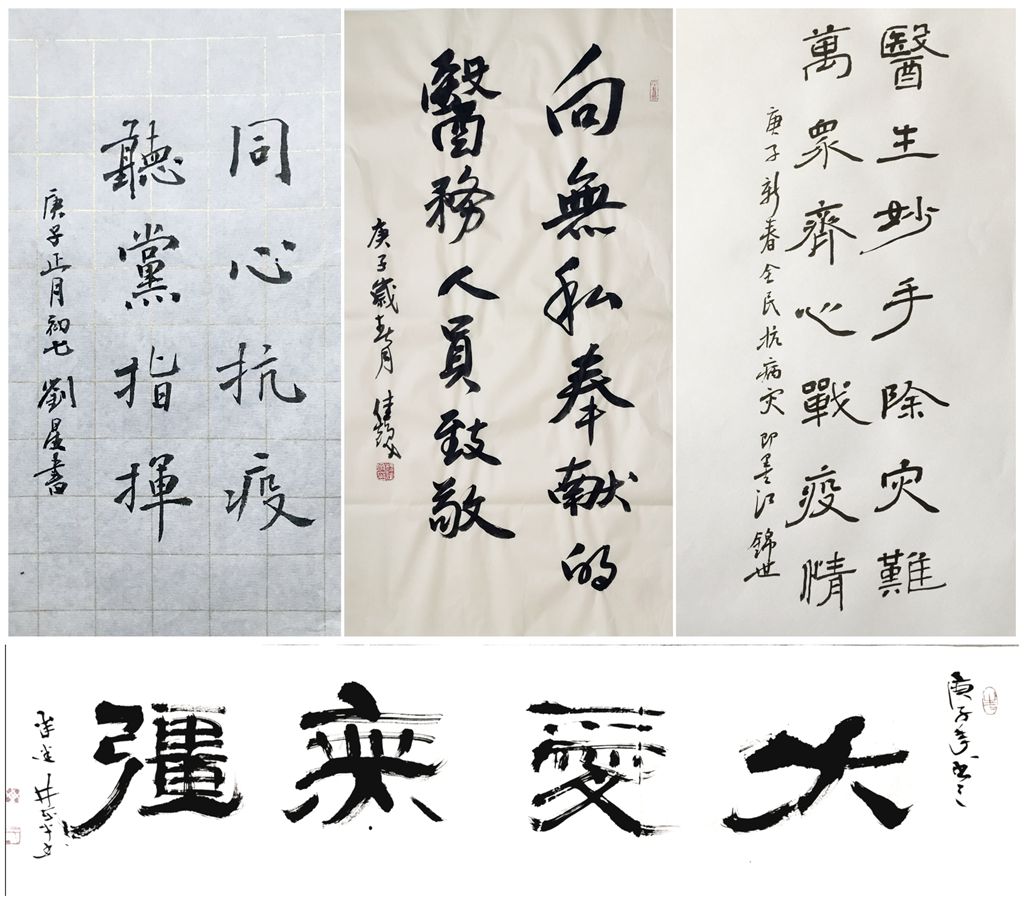 同心抗疫
聽黨指揮
庚子正月初七 劉星書
向無私奉献的
醫務人員致敬
庚子歲春月
醫生妙手除灾難
萬眾齊心戰疫情
庚子新春全民抗病灾 即墨江錦世
大愛無疆
庚子年